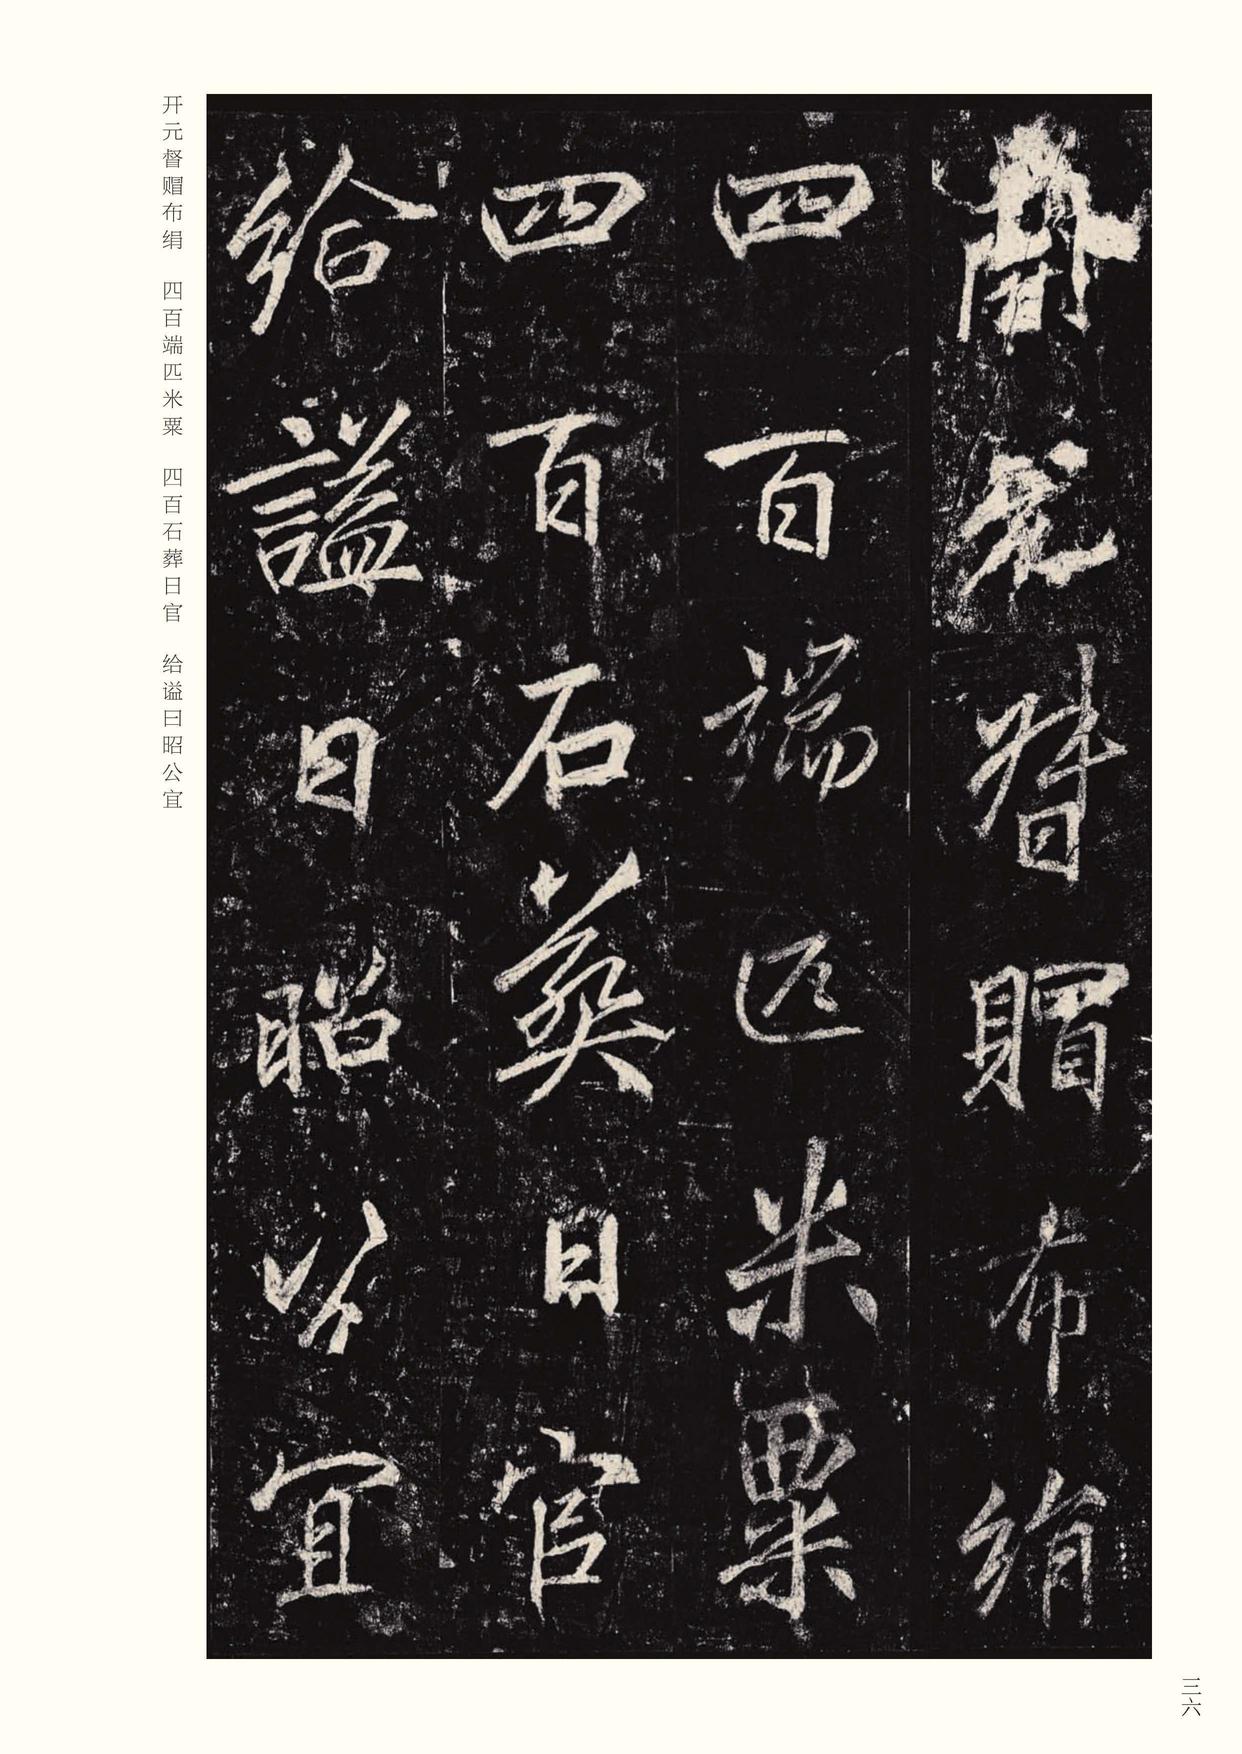 開元督賵布絹
四百端匹米粟
四百石葬日官
給謚曰昭公宜
开元督赗布绢 四百端匹米粟 四百石葬日官 给谥曰昭公宜
三六